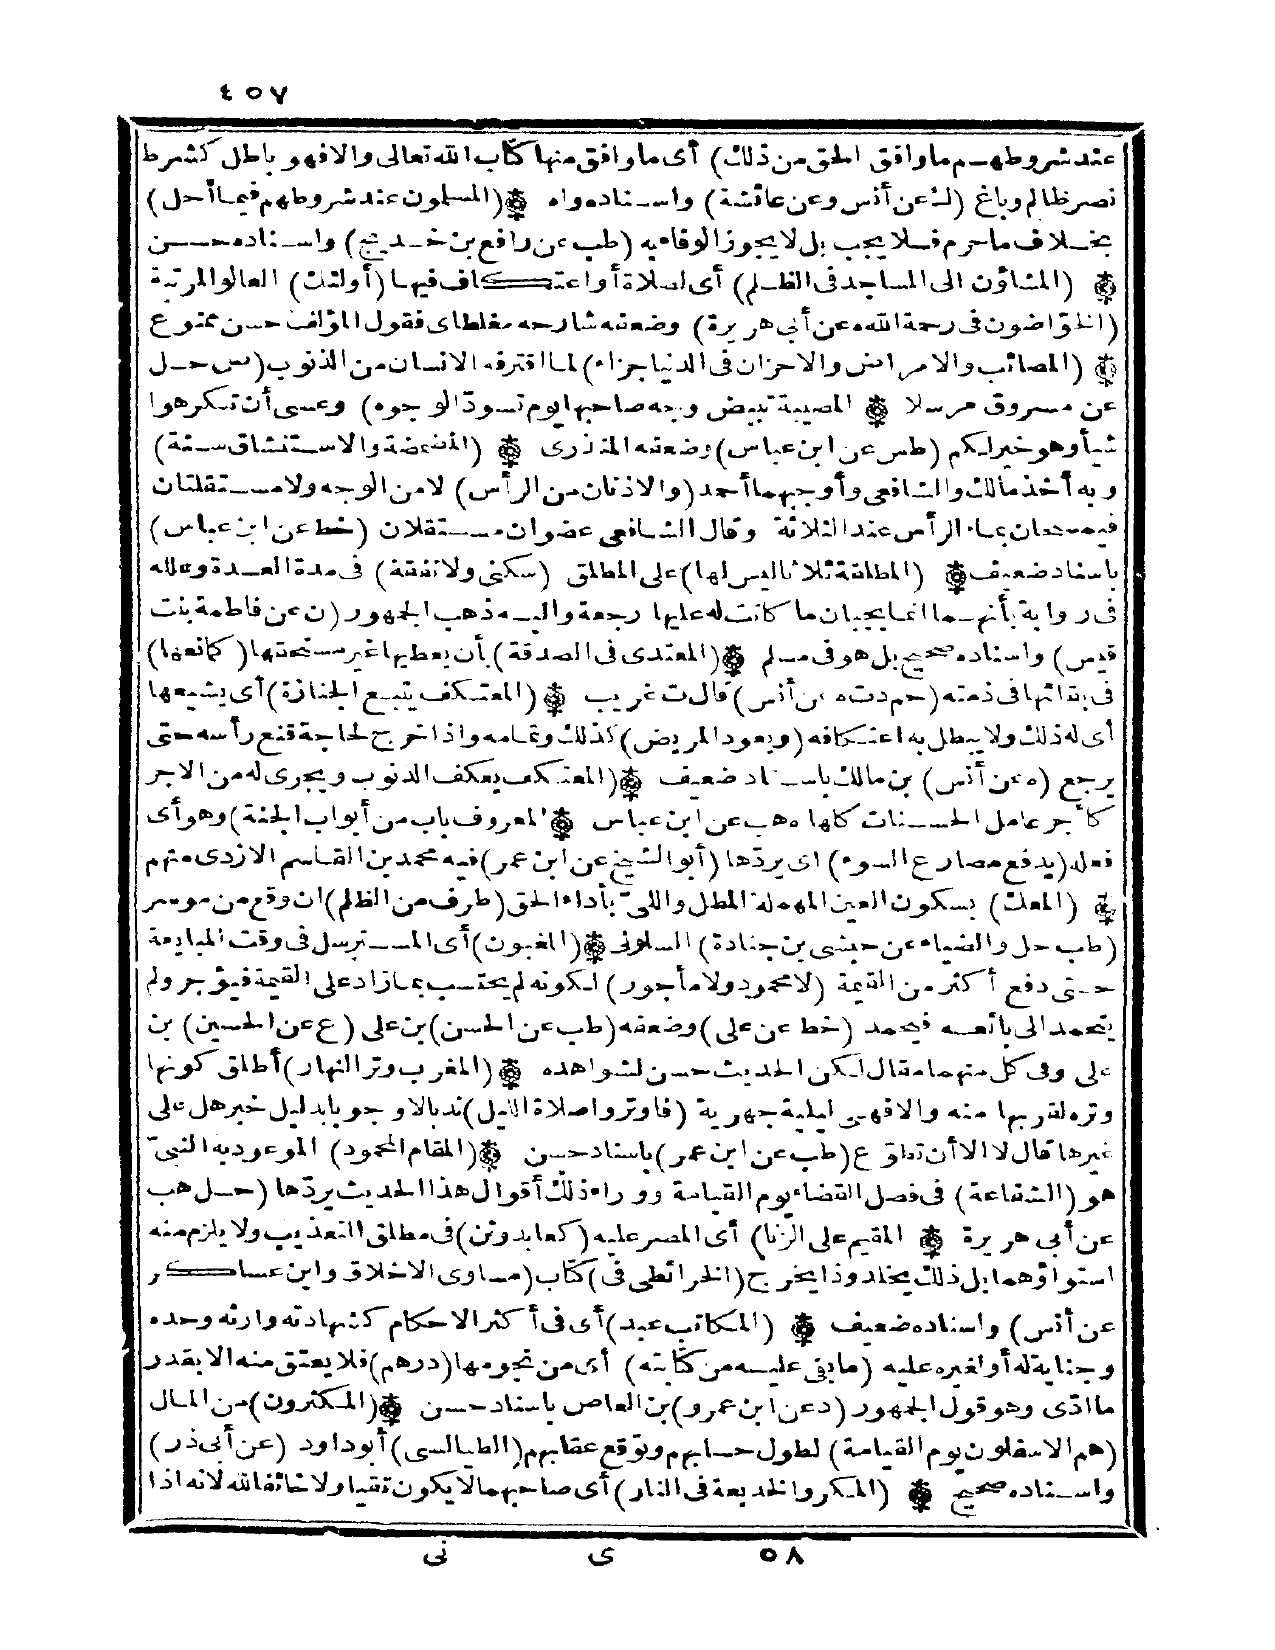 ٤٥٧
عند شروطهم ما وافق الحق من ذلك) أى ما وافق منها كتاب الله تعالى والا فهو باطل كشرط
نصر ظالم وباغ (ك عن أنس وعن عائشة) واسناده واه (المسلمون عند شروطهم فيما أحل)
بخلاف ما حرم فلا يجب بل لا يجوز الوفاء به (طب عن رافع بن خديج) واسناده حسن
(المشاؤن الى المساجد فى الظلم) أى لصلاة أو اعتكاف فيها (أولئك) العالو المرتبة
(الخواضون فى رحمة الله ه عن أبى هريرة) وضعفه شارحه مغلطاى فقول المؤلف حسن ممنوع
(المصائب والامراض والاحزان فى الدنيا جزاء) لما اقترفه الانسان من الذنوب (ص حل
عن مسروق مرسلا المصيبة تبيض وجه صاحبها يوم تسود الوجوه) وعسى أن تكرهوا
شيأ وهو خير لكم (طس عن ابن عباس) وضعفه المنذرى (المضمضة والاستنشاق سنة)
وبه أخذ مالك والشافعى وأوجبهما أحمد (والاذنان من الرأس) لا من الوجه ولا مستقلتان
فيمسحان بماء الرأس عند الثلاثة وقال الشافعى عضوان مستقلان (خط عن ابن عباس)
باسناد ضعيف (المطلقة ثلاثا ليس لها) على المطلق (سكنى ولا نفقة) فى مدة العدة وعلله
فى رواية بأنهما انما يجبان ما كانت له عليها رجعة واليه ذهب الجمهور (ن عن فاطمة بنت
قيس) واسناده صحيح بل هو فى مسلم (المعتدى فى الصدقة) بأن يعطيها غير مستحقها (كمانعها)
فى بقائها فى ذمته (حم د ت ه عن أنس) قال ت غريب (المعتكف يتبع الجنازة) أى يشيعها
أى له ذلك ولا يبطل به اعتكافه (ويعود المريض) كذلك وتمامه واذا خرج لحاجة قنع رأسه حتى
يرجع (ه عن أنس) بن مالك باسناد ضعيف (المعتكف يعكف الذنوب ويجرى له من الاجر
كأجر عامل الحسنات كلها ه هب عن ابن عباس المعروف باب من أبواب الجنة) وهو أى
فعله (يدفع مصارع السوء) اى يردها (أبو الشيخ عن ابن عمر) فيه محمد بن القاسم الازدى متهم
(المعك) بسكون العين المهملة المطل واللى بأداء الحق (طرف من الظلم) ان وقع من موسر
(طب حل والضياء عن حبشى بن جنادة) السلولى (المغبون) أى المسترسل فى وقت المبايعة
حتى دفع أكثر من القيمة (لا محمود ولا مأجور) لكونه لم يحتسب بما زاد على القيمة فيؤجر ولم
يتحمد الى بائعه فيحمد (خط عن على) وضعفه (طب عن الحسن) بن على (ع عن الحسين) بن
على وفى كل منهما مقال لكن الحديث حسن لشواهده (المغرب وتر النهار) أطلق كونها
وتره لقربها منه والا فهى ليلية جهرية (فاوتروا صلاة الليل) ندبا لا وجوبا بدليل خبر هل على
غيرها قال لا الا أن تطوع (طب عن ابن عمر) باسناد حسن (المقام المحمود) الموعود به النبى
هو (الشفاعة) فى فصل القضاء يوم القيامة ووراء ذلك أقوال هذا الحديث يردها (حل هب
عن أبى هريرة المقيم على الزنا) أى المصر عليه (كعابد وثن) فى مطلق التعذيب ولا يلزم منه
استواؤهما بل ذلك يخلد وذا يخرج (الخرائطى فى) كتاب (مساوى الاخلاق وابن عساكر
عن أنس) واسناده ضعيف (المكاتب عبد) أى فى أكثر الاحكام كشهادته وارثه وحده
وجنايته له أو لغيره عليه (ما بقى عليه من كتابته) أى من نجومها (درهم) فلا يعتق منه الا بقدر
ما ادى وهو قول الجمهور (د عن ابن عمرو) بن العاص باسناد حسن (المكثرون) من المال
(هم الاسفلون يوم القيامة) لطول حسابهم وتوقع عقابهم (الطيالسى) أبو داود (عن أبى ذر)
واسناده صحيح (المكر والخديعة فى النار) أى صاحبهما لا يكون تقيا ولا خائفا لله لانه اذا
٥٨ ى نى